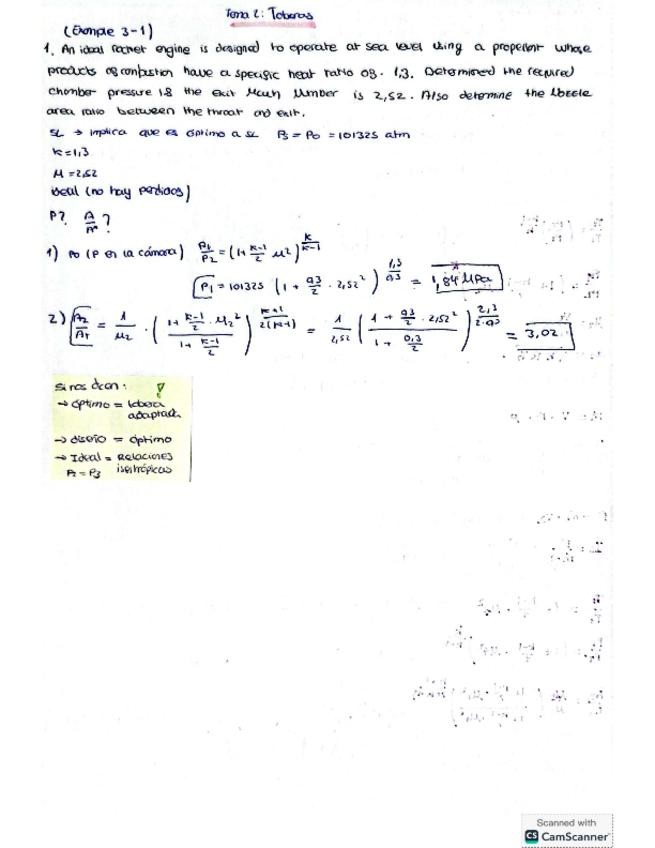 Tema 2: Toberas
(Example 3-1)
1. An ideal rocket engine is designed to operate at sea level using a propellant whose
products of combustion have a specific heat ratio of . 1.3. Determined the required
chamber pressure if the exit Mach Number is 2,52. Also determine the Nozzle
area ratio between the throat and exit.
SL → implica que es óptimo a SL P3 = P0 = 101325 atm
K = 1,3
M = 2,52
ideal (no hay perdidas)
P? A/A* ?
1) P0 (P en la cámara) P1/P2 = (1 + K-1/2 M²)^K/K-1
P1 = 101325 (1 + 0,3/2 · 2,52²)^1,3/0,3 = 1,84 MPa
2) A2/A1 = 1/M2 · (1 + K-1/2 · M2² / 1 + K-1/2)^K+1/2(K-1) = 1/2,52 (1 + 0,3/2 · 2,52² / 1 + 0,3/2)^2,3/2·0,3 = 3,02
Si nos dicen: !
→ óptimo = tobera
adaptada
→ diseño = óptimo
→ Ideal = Relaciones
isentrópicas
P2 = P3
Scanned with
CS CamScanner